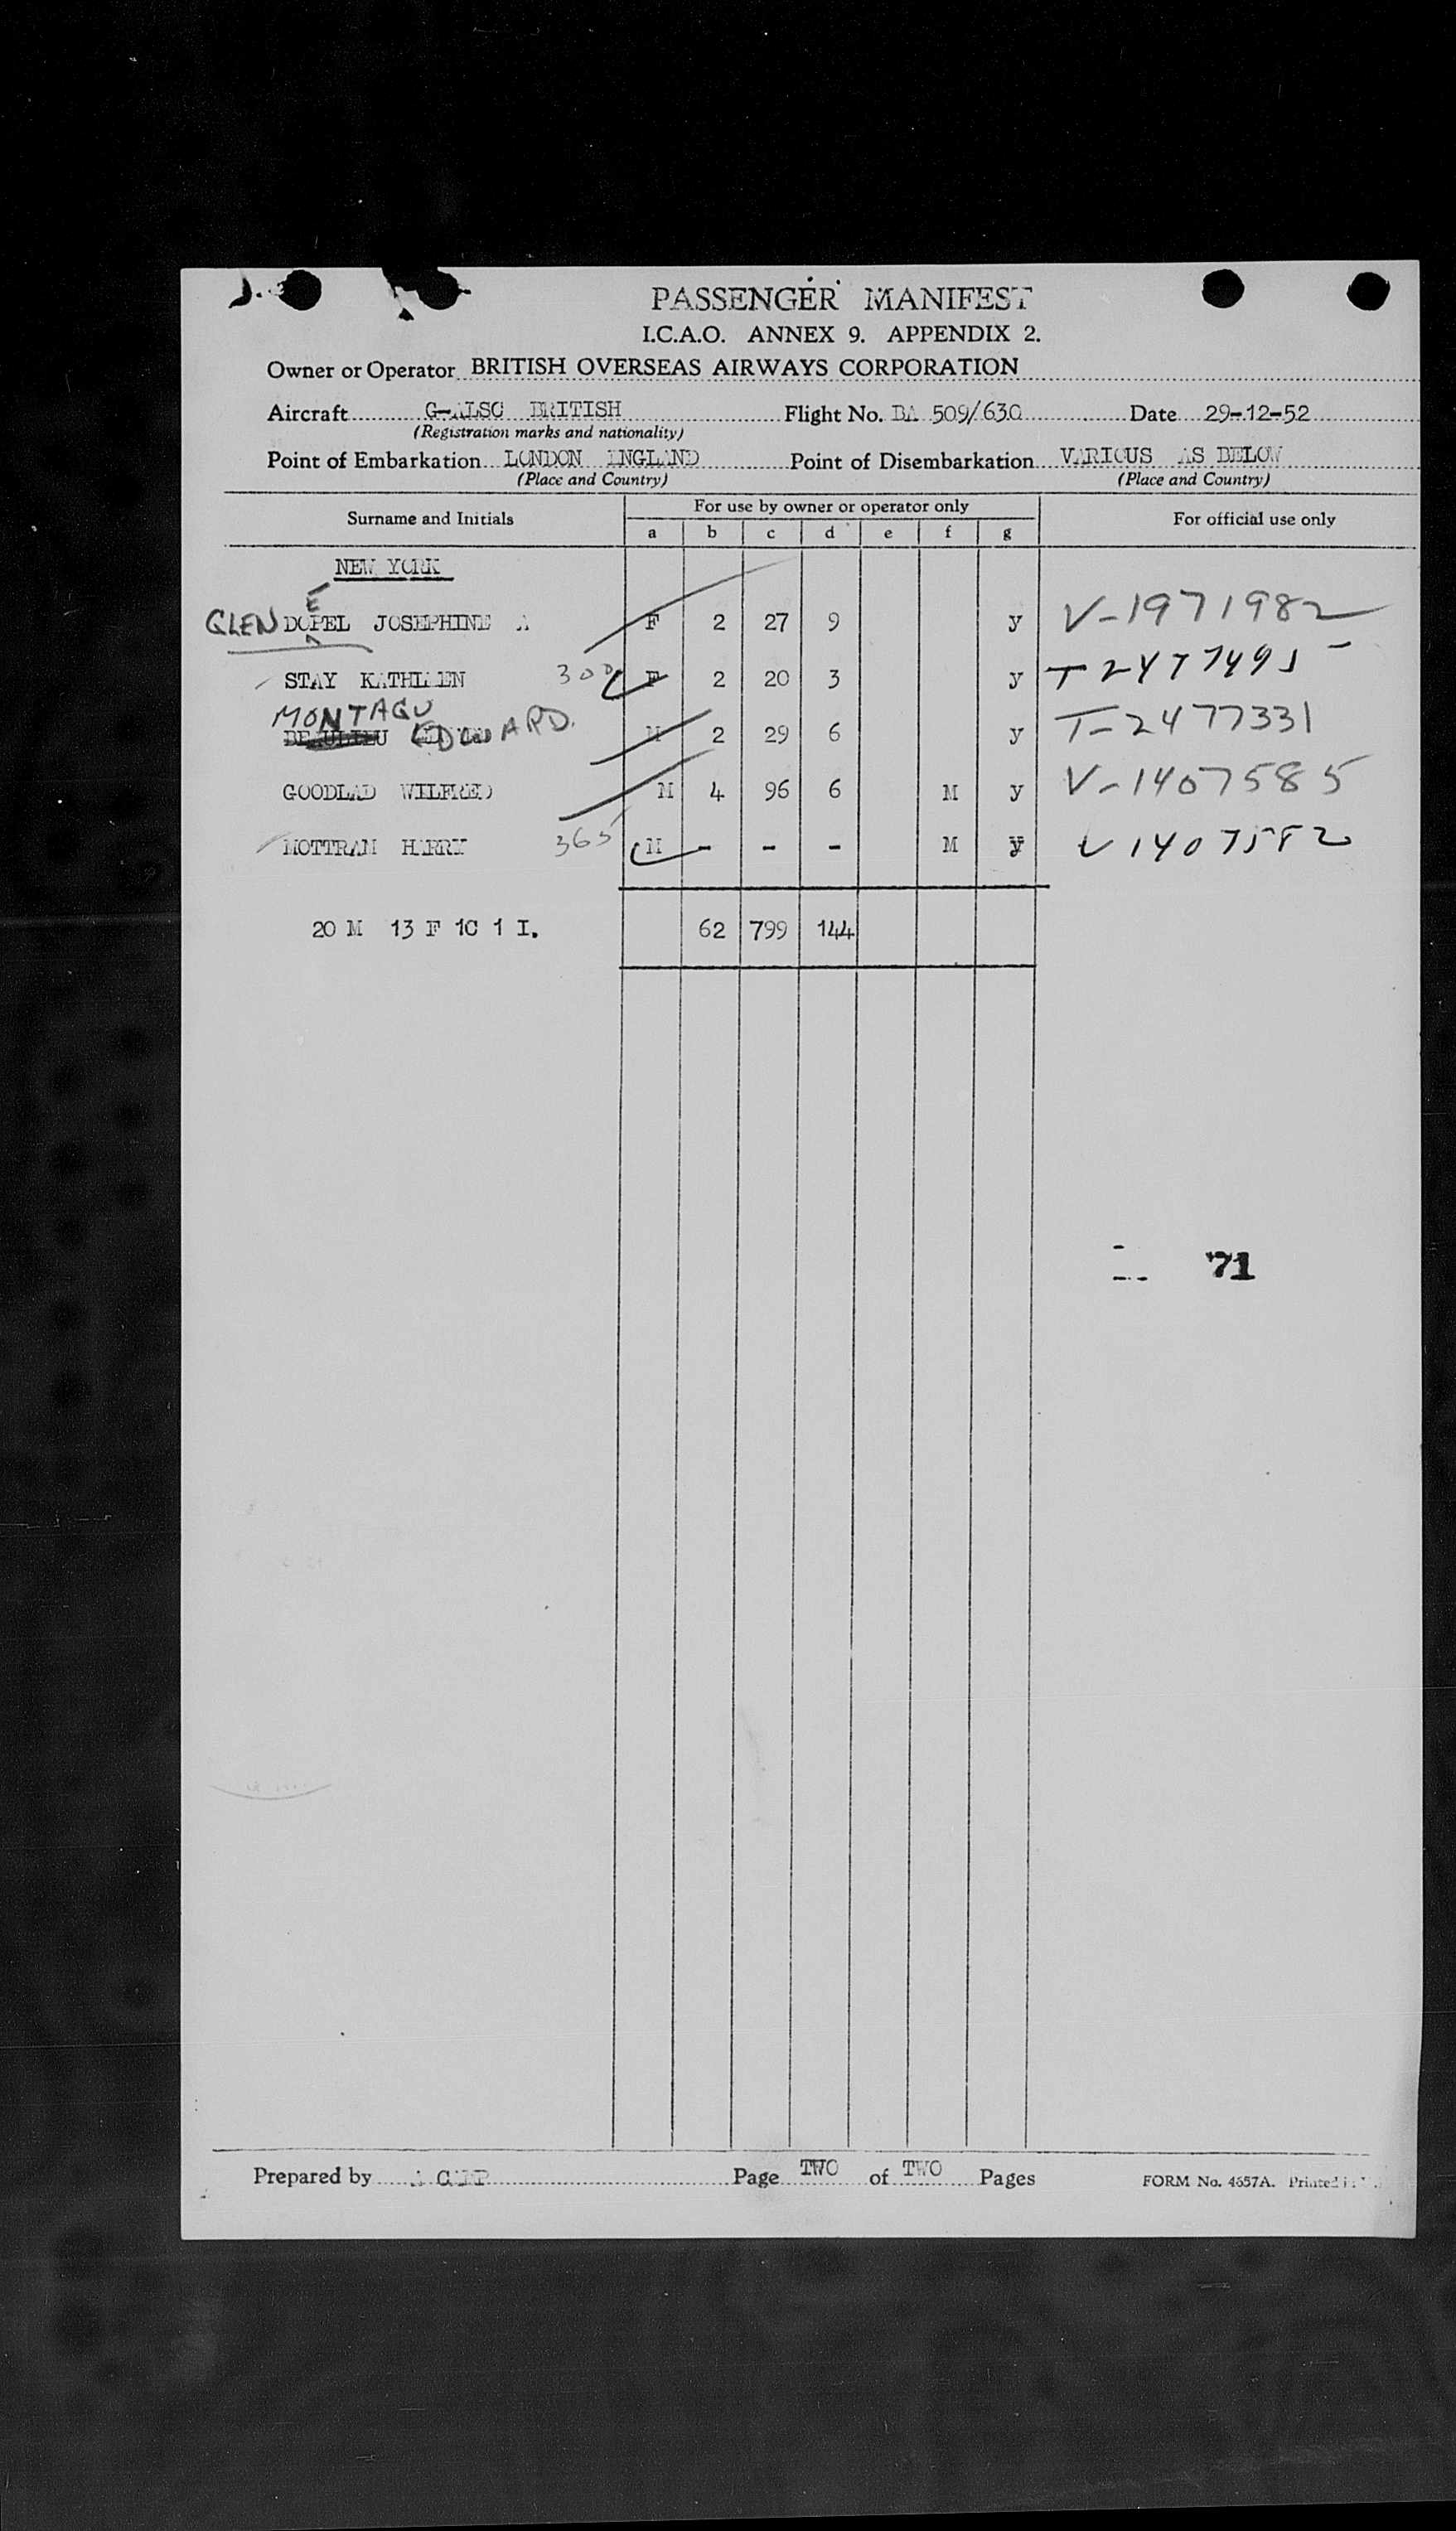 PASSENGER MANIFEST
I.C.A.O. ANNEX 9. APPENDIX 2.
Owner or Operator BRITISH OVERSEAS AIRWAYS CORPORATION
Aircraft G-ALSC BRITISH Flight No. BA 509/630 Date 29-12-52
(Registration marks and nationality)
Point of Embarkation LONDON ENGLAND Point of Disembarkation VARIOUS AS BELOW
(Place and Country) (Place and Country)
Surname and Initials For use by owner or operator only For official use only
a b c d e f g
NEW YORK
E
GLEN DOPEL JOSEPHINE A F 2 27 9 y V-1971982
STAY KATHLEEN 300 F 2 20 3 y T2477495
MONTAGU
BEAULIEU EDWARD. M 2 29 6 y T-2477331
GOODLAD WILFRED M 4 96 6 M y V-1407585
MOTTRAM HARRY 365 M - - - M y V1407582
20 M 13 F 1C 1 I. 62 799 144
71
Prepared by Page TWO of TWO Pages FORM No. 4657A. Printed in